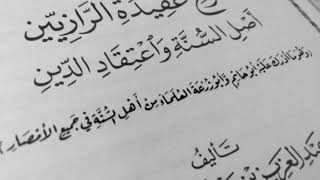 عَقِيدَةِ الرَّازِيَّيْنِ
أَصْلُ السُّنَّةِ وَاعْتِقَادُ الدِّينِ
أَبُو حَاتِمٍ وَأَبُو زُرْعَةَ العُلَمَاءَ مِنْ أَهْلِ السُّنَّةِ فِي جَمِيعِ الأَمْصَارِ
تَأْلِيفُ
عبد العزيز بن